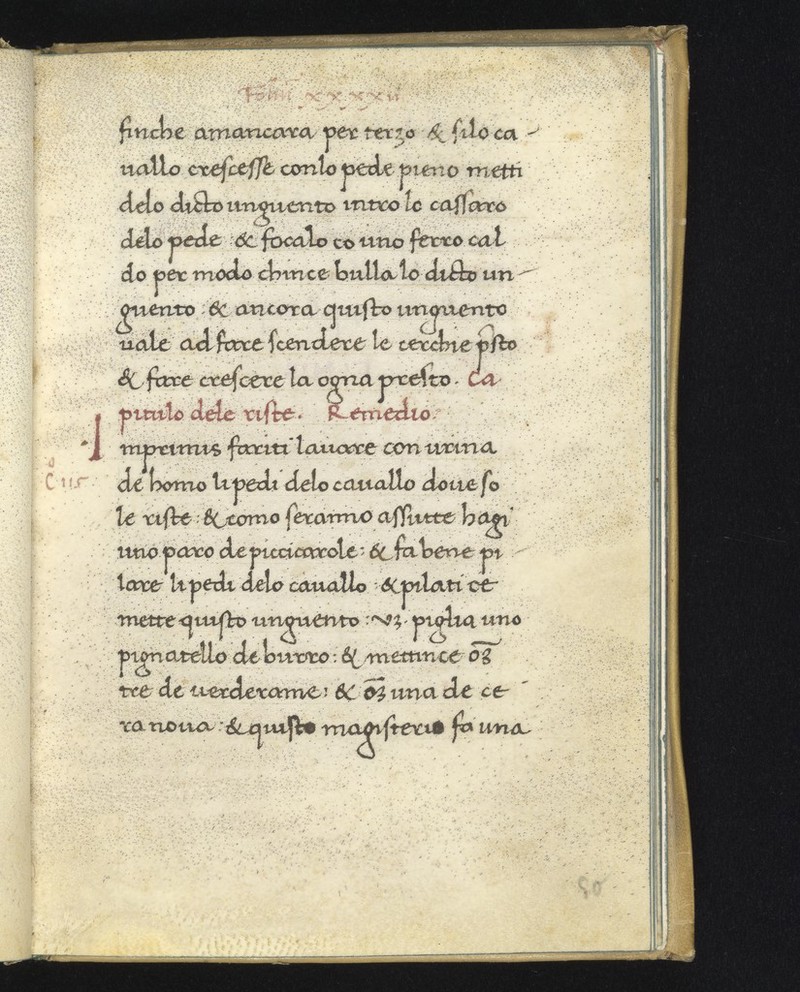 Foliū xxxxii
finche amancara per terzo & silo ca-
uallo crescesse conlo pede pieno metti
delo dicto unguento intro lo cassaro
delo pede & focalo co uno ferro cal
do per modo chince bulla lo dicto un-
guento : & ancora quisto unguento
uale ad fare scendere le cerchie p̄sto
& fare crescere la ogna presto. Ca
pitulo dele riste. Remedio.
Inprimis fariti lauare con urina
de homo li pedi delo cauallo doue so
C° 115
le riste : & como seranno assutte hagi
uno paro de piccicarole : & fa bene pi
lare li pedi delo cauallo : & pilati ce
mette quisto unguento : vz. piglia uno
pignatello de burro : & mettince oz̄
tre de uerderame : & oz̄ una de ce
ra noua : & quisto magisterio fa una
50